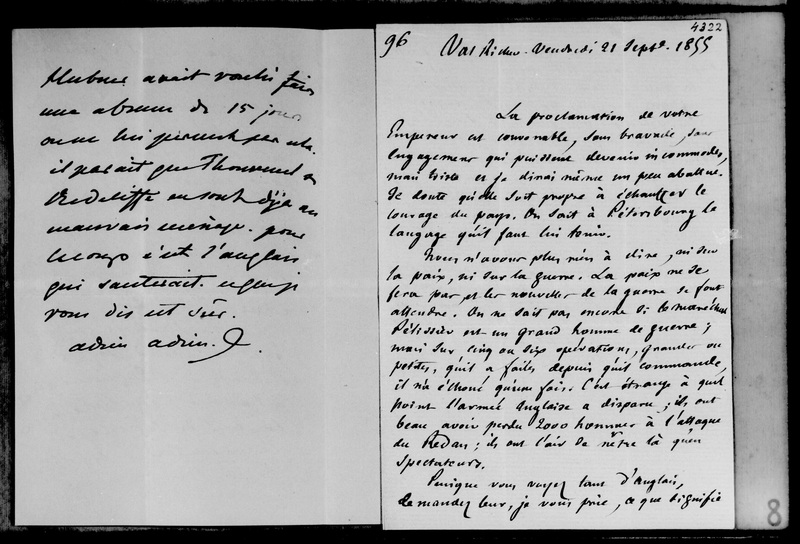 Hubner avait voulu faire
une absence de 15 jours
on ne lui permet pas cela.
il parait que Thouvenel &
Redcliffe en sont déja au
mauvais ménage. pour
le coup c'est l'anglais
qui sauterait.
vous dis est sûr.
adieu adieu.
4322
96
Val Richer. Vendredi 21 Septe. 1855
La proclamation de votre
Empereur est convenable, sans bravade, sans
engagement qui puissent devenir incommodes,
mais triste et je dirai même un peu abattue.
Je doute qu'elle soit propre à échauffer le
courage du pays. On sait à Pétersbourg le
langage qu'il faut lui tenir.
Nous n'avons plus rien à dire, ni sur
la paix, ni sur la guerre. La paix ne se
fera pas et les nouvelles de la guerre se font
attendre. On ne sait pas encore si le maréchal
Pélissier est un grand homme de guerre ;
mais sur cinq ou six opérations, grandes ou
petites, qu'il a faites depuis qu'il commande,
il n'a échoué qu'une fois. C'est étrange à quel
point l'armée Anglaise a disparu ; ils ont
beau avoir perdu 2000 hommes à l'attaque
du Redan ; ils ont l'air de n'être là qu'en
spectateurs.
Puisque vous voyez tant d'Anglais,
demandez leur, je vous prie, ce que signifie
8